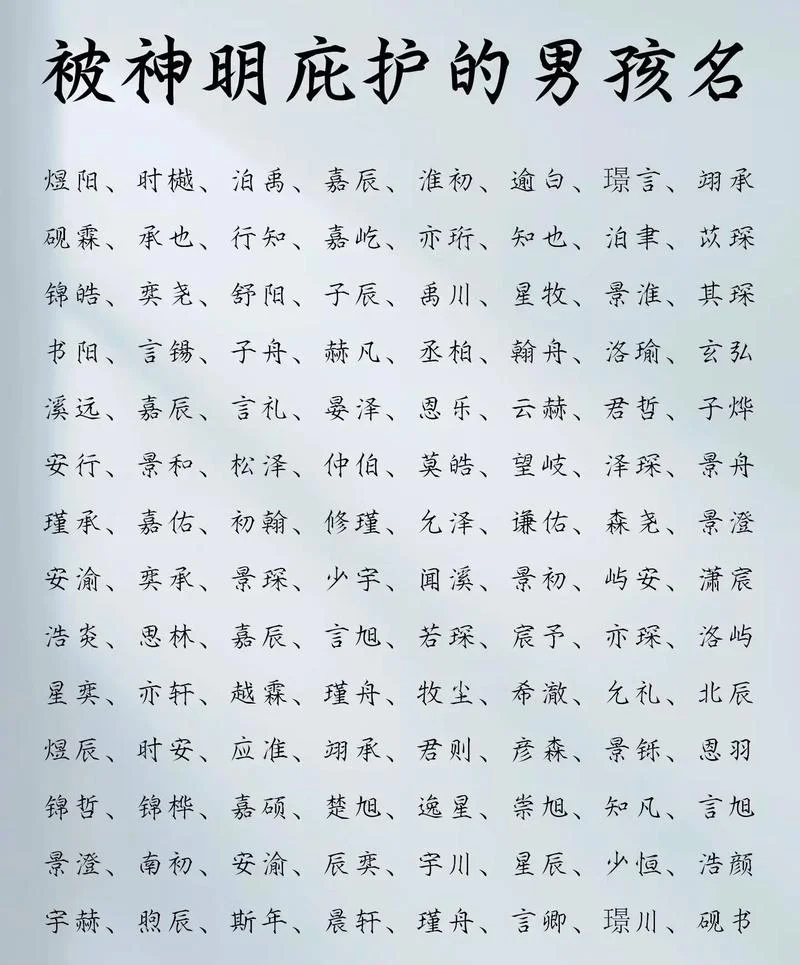 被神明庇护的男孩名
煜阳、时樾、泊禹、嘉辰、淮初、逾白、璟言、翊承
砚霖、承也、行知、嘉屹、亦珩、知也、泊聿、苡琛
锦皓、奕尧、舒阳、子辰、禹川、星牧、景淮、其琛
书阳、言锡、子舟、赫凡、丞柏、翰舟、洛瑜、玄弘
溪远、嘉辰、言礼、晏泽、恩乐、云赫、君哲、子烨
安行、景和、松泽、仲伯、莫皓、望岐、泽琛、景舟
瑾承、嘉佑、初翰、修瑾、允泽、谦佑、森尧、景澄
安渝、奕承、景琛、少宇、闻溪、景初、屿安、潇宸
浩炎、思林、嘉辰、言旭、若琛、宸予、亦琛、洛屿
星奕、亦轩、越霖、瑾舟、牧尘、希澈、允礼、北辰
煜辰、时安、应准、翊承、君则、彦森、景铄、恩羽
锦哲、锦桦、嘉硕、楚旭、逸星、崇旭、知凡、言旭
景澄、南初、安渝、辰奕、宇川、星辰、少恒、浩颜
宇赫、煦辰、斯年、晨轩、瑾舟、言卿、璟川、砚书